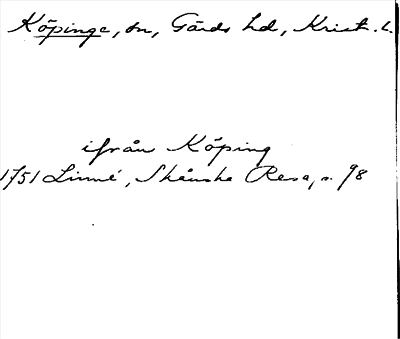 Köpinge, sn, Gärds hd, Krist. l.
ifrån Köping
1751 Linné, Skånska Resa, s. 98